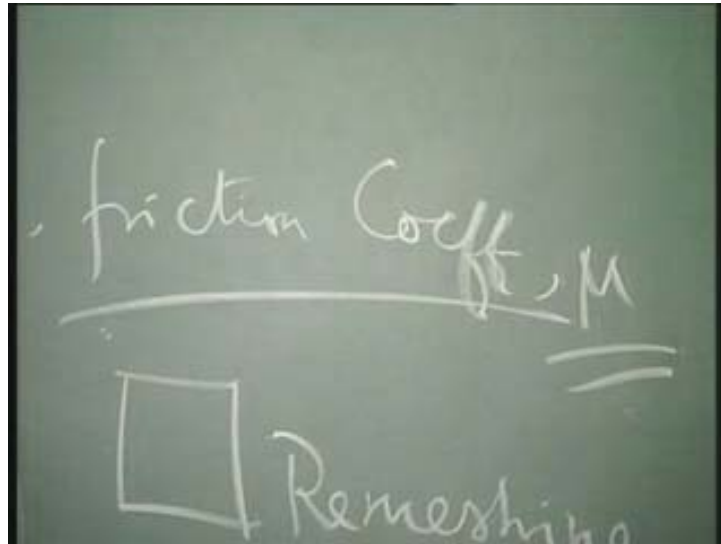 , friction Coefft, μ
Remeshing